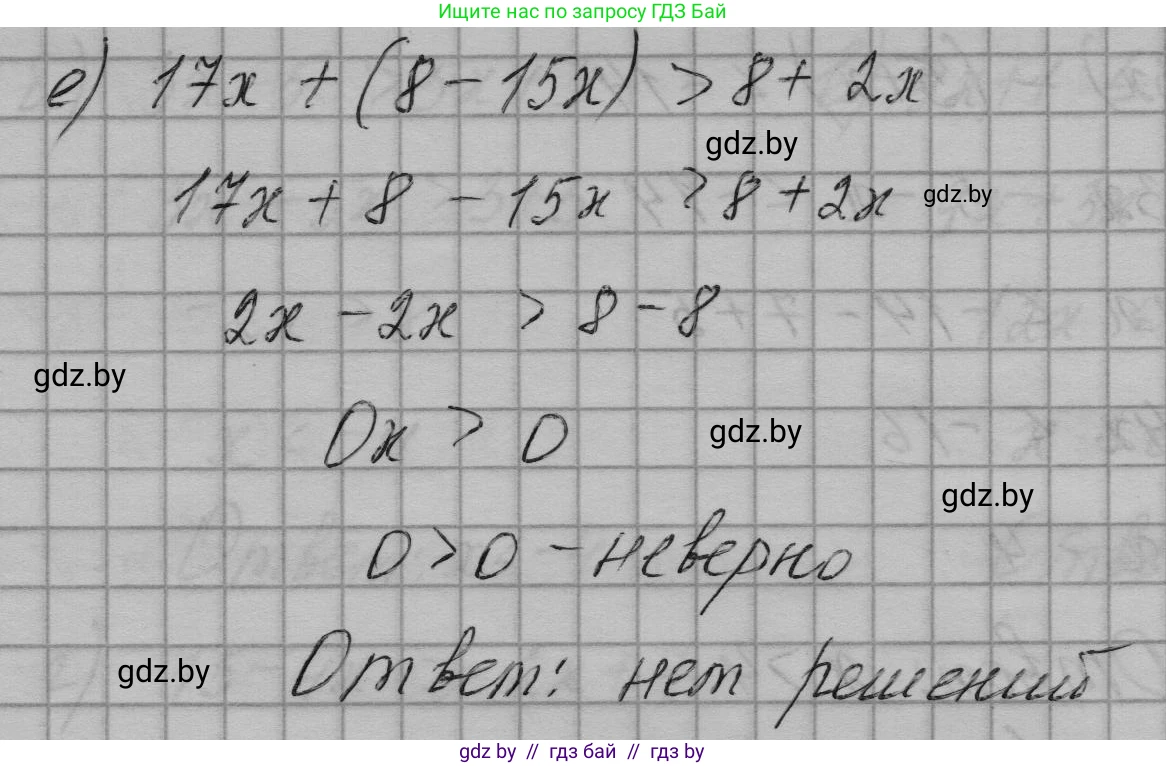 Ищите нас по запросу ГДЗ Бай
е) 17x + (8 - 15x) > 8 + 2x
gdz.by
17x + 8 - 15x > 8 + 2x gdz.by
2x - 2x > 8 - 8
gdz.by
0x > 0 gdz.by
gdz.by
0 > 0 - неверно
gdz.by Ответ: нет решений
gdz by // гдз бай // gdz by